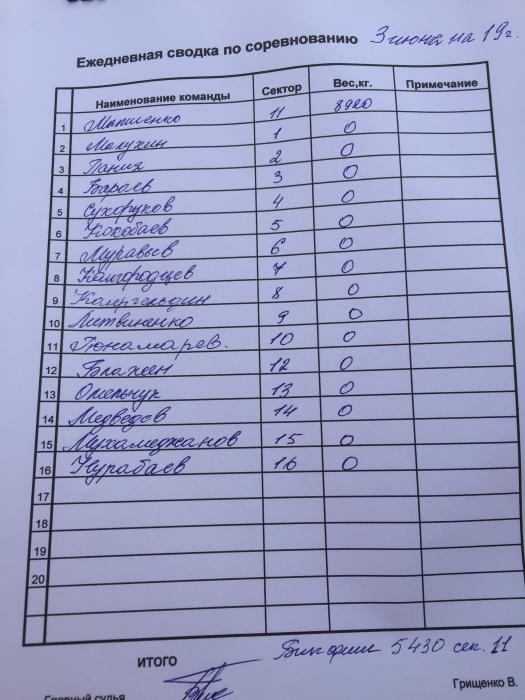 Ежедневная сводка по соревнованию 3 июня на 19 г.
Наименование команды Сектор Вес,кг. Примечание
1 Матиенко 11 8920
2 Малухин 1 0
3 Пания 2 0
4 Бараев 3 0
5 Сухоруков 4 0
6 Кокобаев 5 0
7 Муравьев 6 0
8 Кайгородцев 7 0
9 8 0
10 Литвиненко 9 0
11 10 0
12 Блажен 12 0
13 Омельчук 13 0
14 Медведев 14 0
15 Мухамеджанов 15 0
16 Нурабаев 16 0
17
18
19
20
ИТОГО Бигфиш 5430 сек. 11
Главный судья Грищенко В.